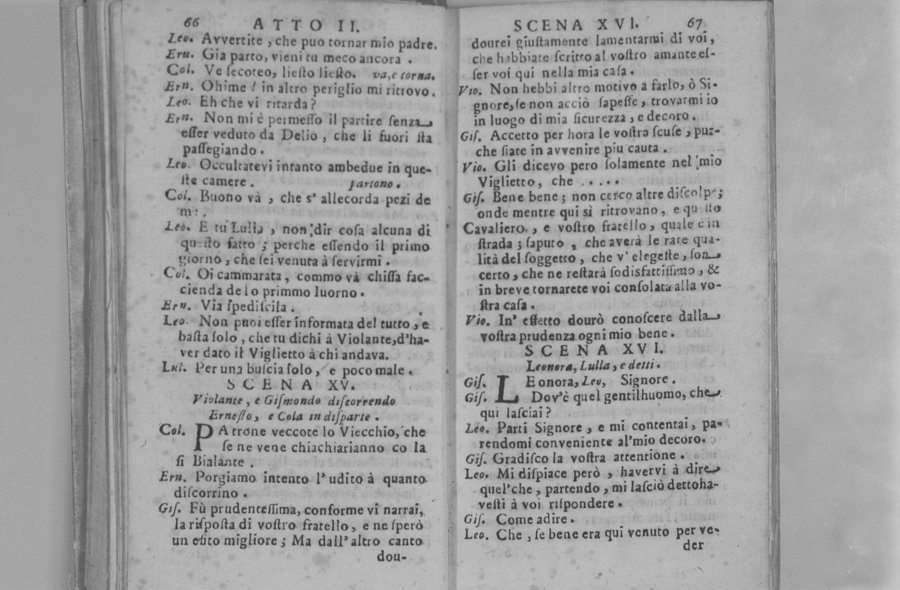 66 ATTO II.
Leo. Avvertite, che puo tornar mio padre.
Ern. Gia parto, vieni tu meco ancora.
Col. Ve secoteo, liesto liesto. va, e torna.
Ern. Ohime! in altro periglio mi ritrovo.
Leo. Eh che vi ritarda?
Ern. Non mi è permesso il partire senza
esser veduto da Delio, che li fuori sta
passegiando.
Leo. Occultatevi intanto ambedue in que-
ste camere. partono.
Col. Buono và, che s' allecorda pezi de
Leo. E tu Lulla, non dir cosa alcuna di
questo fatto; perche essendo il primo
giorno, che sei venuta à servirmi.
Col. Oi cammarata, commo và chissa fac-
cienda de lo primmo luorno.
Ern. Via spediscila.
Leo. Non puoi esser informata del tutto, e
basta solo, che tu dichi à Violante, d'ha-
ver dato il Viglietto à chi andava.
Lul. Per una buscia solo, e poco male.
SCENA XV.
Violante, e Gismondo discorrendo
Ernesto, e Cola in disparte.
Col. PAtrone veccote lo Viecchio, che
se ne vene chiachiarianno co la
si Bialante.
Ern. Porgiamo intento l'udito à quanto
discorrino.
Gis. Fù prudentessima, conforme vi narrai,
la risposta di vostro fratello, e ne sperò
un esito migliore; Ma dall'altro canto
dou-
SCENA XVI. 67
dourei giustamente lamentarmi di voi,
che habbiate scritto al vostro amante es-
ser voi qui nella mia casa.
Vio. Non hebbi altro motivo a farlo, ò Si-
gnore, se non acciò sapesse, trovarmi io
in luogo di mia sicurezza, e decoro.
Gis. Accetto per hora le vostra scuse, pur-
che siate in avvenire piu cauta.
Vio. Gli dicevo pero solamente nel mio
Viglietto, che .....
Gis. Bene bene; non cerco altre discolpe;
onde mentre qui si ritrovano, e questo
Cavaliero, e vostro fratello, quale è in
strada; saputo, che averà le rare qua-
lità del soggetto, che v' elegeste, son
certo, che ne restarà sodisfattissimo, &
in breve tornarete voi consolata alla vo-
stra casa.
Vio. In' effetto dourò conoscere dalla
vostra prudenza ogni mio bene.
SCENA XVI.
Leonora, Lulla, e detti.
Gis. LEonora, Leo, Signore.
Gis. Dov'è quel gentilhuomo, che
qui lasciai?
Leo. Parti Signore, e mi contentai, pa-
rendomi conveniente al'mio decoro.
Gis. Gradisco la vostra attentione.
Leo. Mi dispiace però, havervi à dire
quel'che, partendo, mi lasciò dettoha-
vesti à voi rispondere.
Gis. Come adire.
Leo. Che, se bene era qui venuto per ve-
der